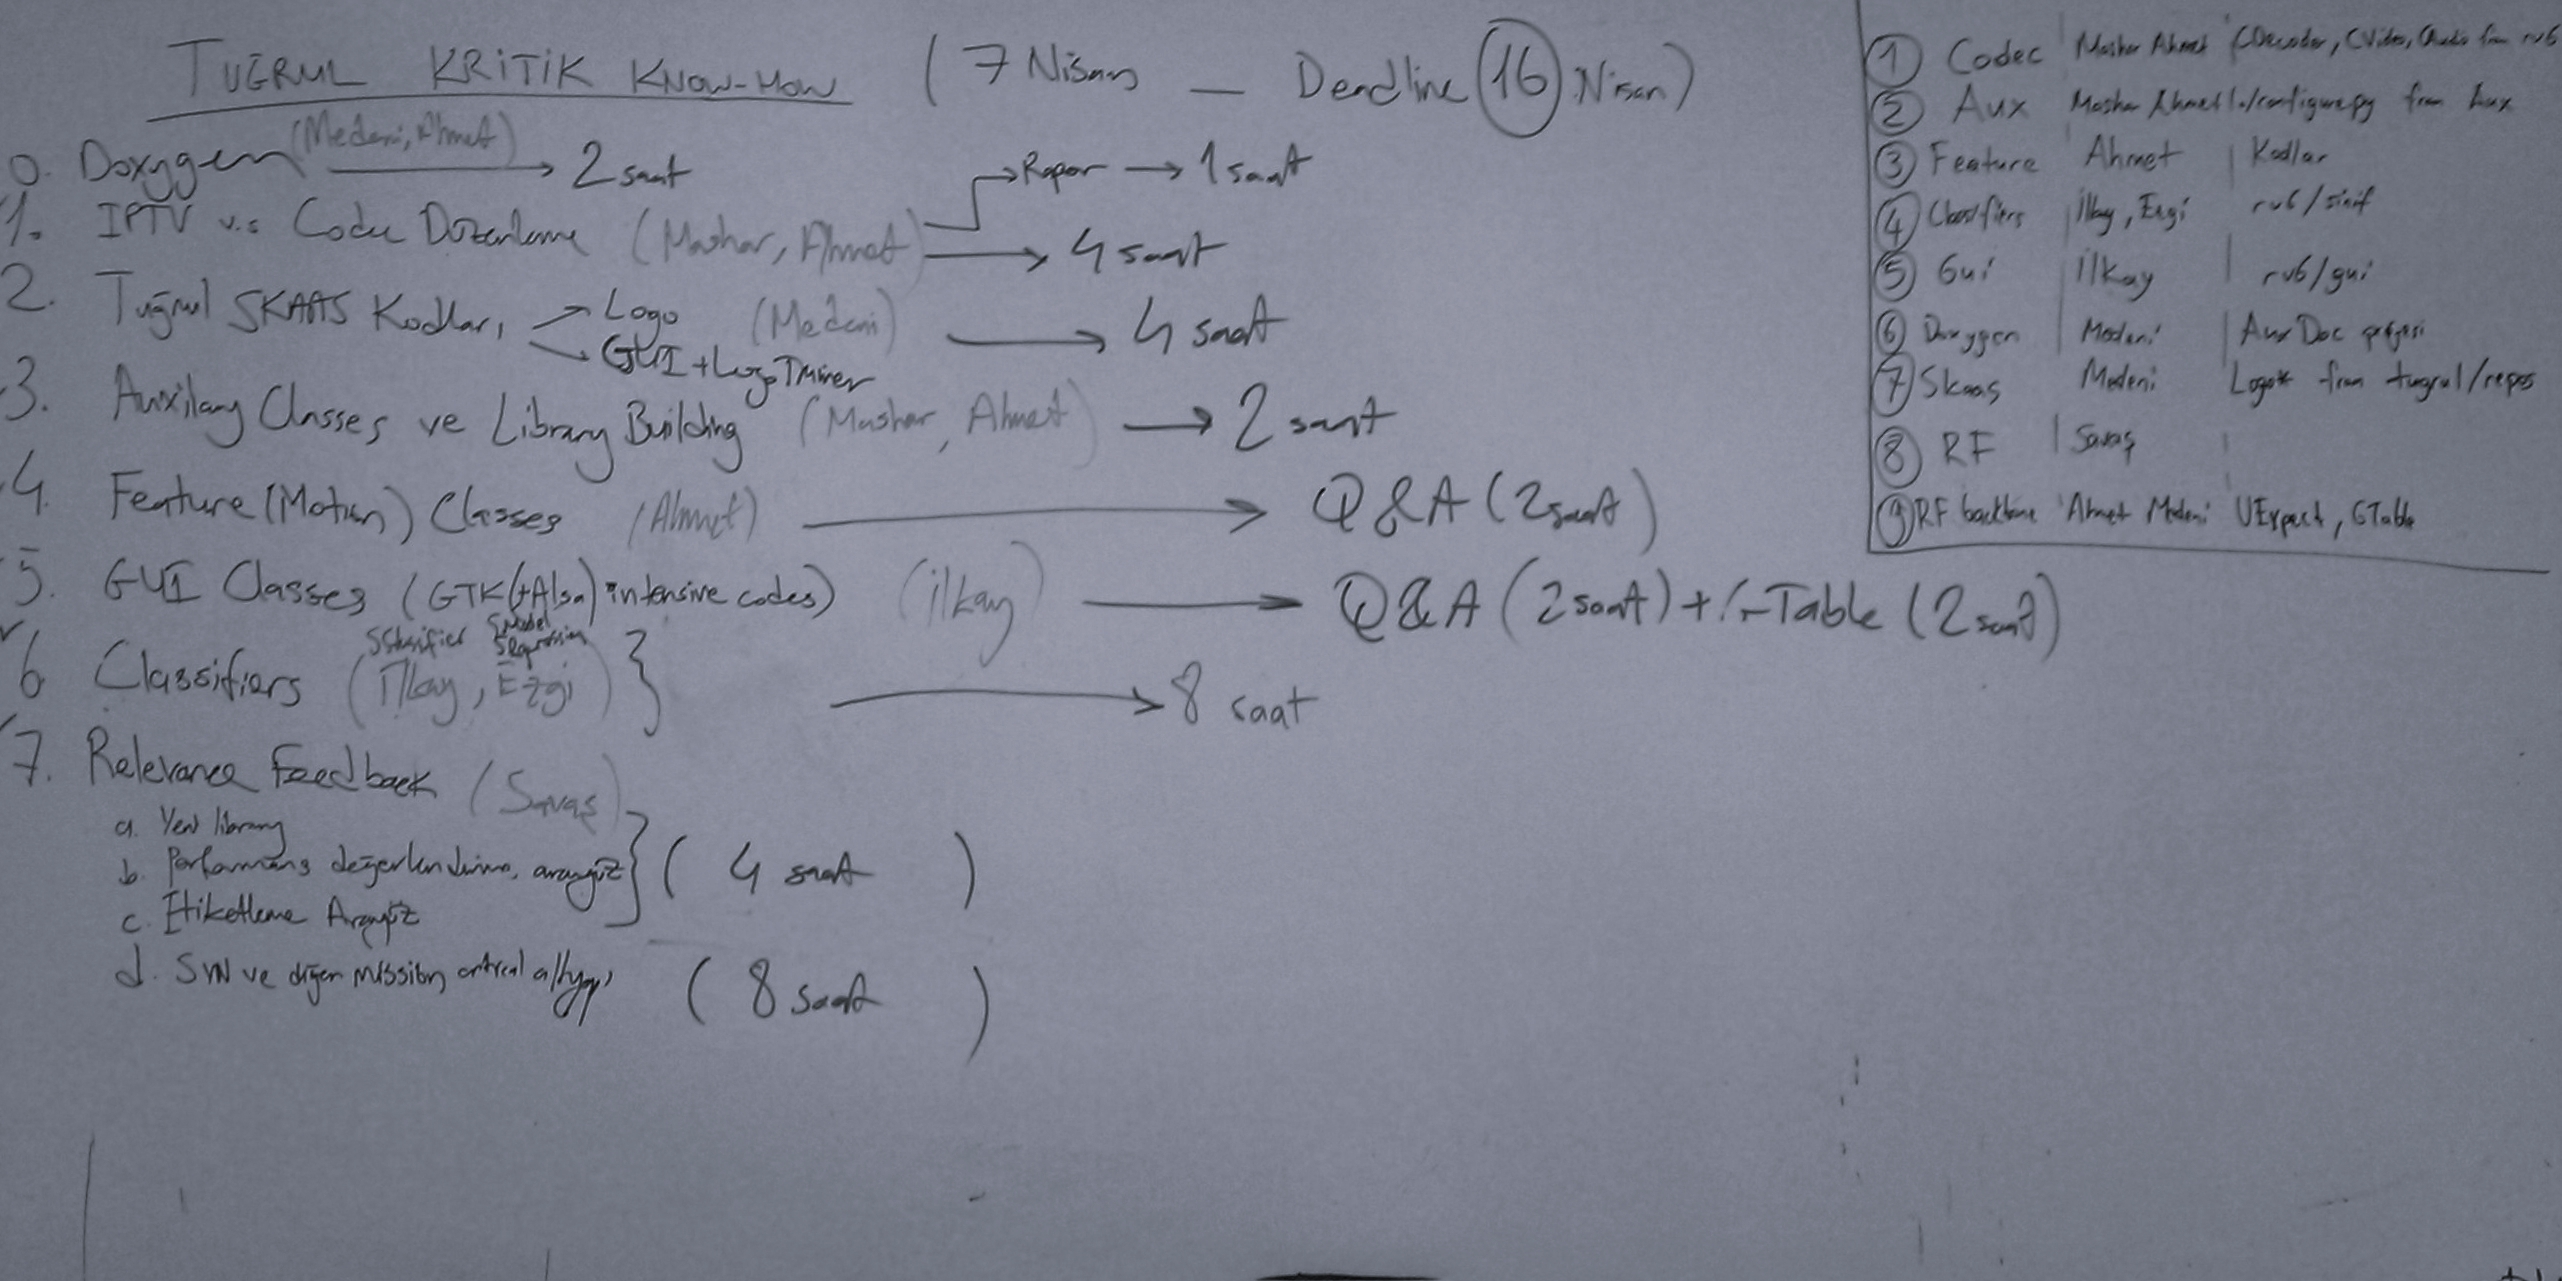 TUĞRUL KRİTİK KNOW-HOW (7 Nisan — Deadline 16 Nisan)
0. Doxygen (Medeni, Ahmet) → 2 saat
1. IPTV v.s Codec Düzenleme (Mashar, Ahmet) → Rapor → 1 saat
→ 4 saat
2. Tuğrul SKAAS Kodları → Logo (Medeni) → 4 saat
→ GUI + Logo Trainer
3. Auxilary Classes ve Library Building (Mashar, Ahmet) → 2 saat
4. Feature (Motion) Classes (Ahmet) → Q&A (2 saat)
5. GUI Classes (GTK (+Alsa) intensive codes) (ilkay) → Q&A (2 saat) + G-Table (2 saat)
SClassifier SModel
SRegression
6 Classifiers (İlkay, Ezgi) } → 8 saat
7. Relevance Feedback (Savaş)
a. Yeni library
b. Performans değerlendirme, arayüz } (4 saat)
c. Etiketleme Arayüz
d. SVN ve diğer mission critical altyapı (8 saat)
1 Codec Mashar Ahmet CDecoder, CVideo, CAudio from rv6
2 Aux Mashar Ahmet from Aux
3 Feature Ahmet | Kodlar
4 Classifiers | İlkay, Ezgi rv6/sinif
5 Gui | İlkay | rv6/gui
6 Doxygen | Medeni | AuxDoc projesi
7 Skaas Medeni Logo* from tugrul/repos
8 RF | Savaş
9 RF backbone Ahmet Medeni UExpect, GTable